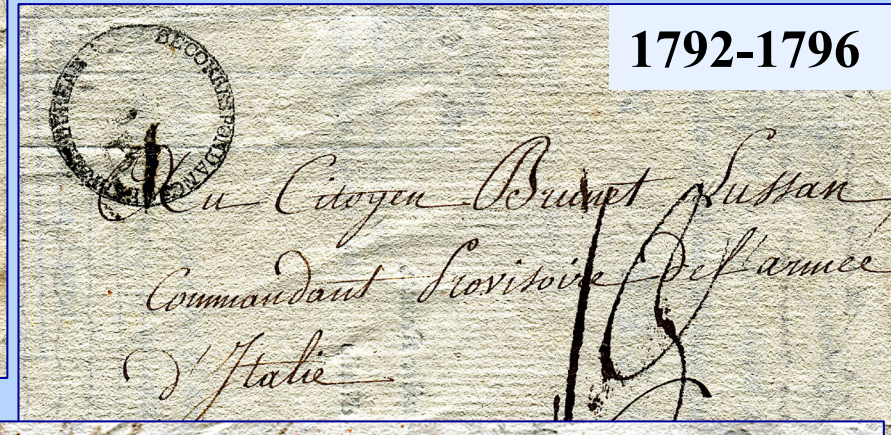 1792-1796
DE CORRESPONDANCE
Au Citoyen Brunet Lussan
Commandant Provisoire de l'armée
d'Italie
18